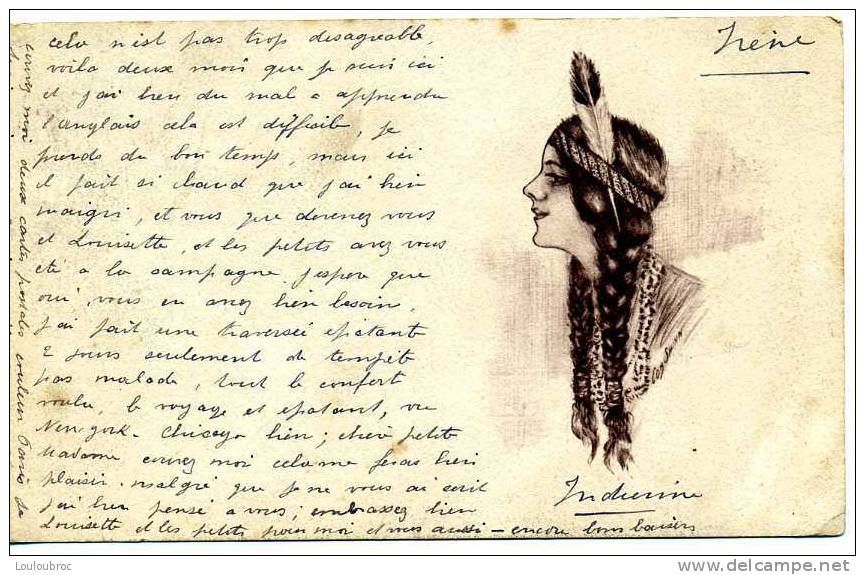 cela n'est pas trop desagreable,
voila deux mois que je suis ici
et j'ai bien du mal a apprendre
l'anglais cela est difficile, je
perds du bon temps, mais ici
il fait si chaud que j'ai bien
maigri, et vous que devenez vous
et Louisette, et les petits avez vous
eté a la campagne j'espere que
oui, vous en avez bien besoin,
j'ai fait une traversée epatante
2 jours seulement de tempéte
pas malade, tout le confort
voulu, le voyage et epatant, vu
New-york. Chicago bien; chère petite
Madame ecrivez moi cela me feras bien
plaisir. malgré que je ne vous ai ecrit
j'ai bien pensé a vous; embrassez bien
Louisette et les petits pour moi et vous aussi - encore bons baisers
Irène
Indienne
moi deux cartes postales couleur Paris
Louloubroc
www.delcampe.net